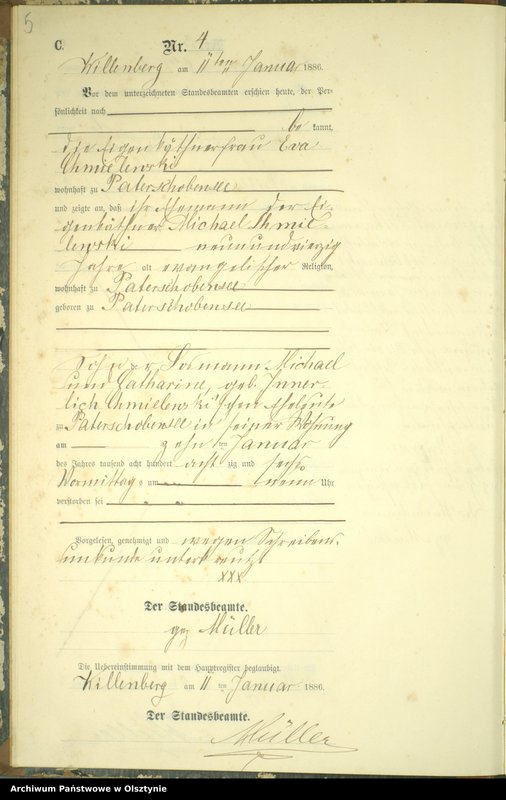 5
C.
Nr. 4
Willenberg am 11ten Januar 1886.
Vor dem unterzeichneten Standesbeamten erschien heute, der Per-
sönlichkeit nach
be kannt,
die Eigenkäthnerfrau Eva
Chmielewski
wohnhaft zu Paterschobensee
und zeigte an, daß ihr Ehemann der Ei-
genkäthner Michael Chmie-
lewski neunundvierzig
Jahre alt evangelischer Religion,
wohnhaft zu Paterschobensee
geboren zu Paterschobensee
Sohn der Losmann Michael
und Catharine, geb.
lich Chmielewski'schen Eheleute
zu Paterschobensee in seiner Wohnung
am zehn ten Januar
des Jahres tausend acht hundert acht zig und sechs
Vormittags um neun Uhr
verstorben sei
Vorgelesen, genehmigt und wegen Schreibens-
unkunde unterkreuzt
XXX
Der Standesbeamte.
gez Müller
Die Uebereinstimmung mit dem Hauptregister beglaubigt.
Willenberg am 11 ten Januar 1886.
Der Standesbeamte.
Müller
Archiwum Państwowe w Olsztynie